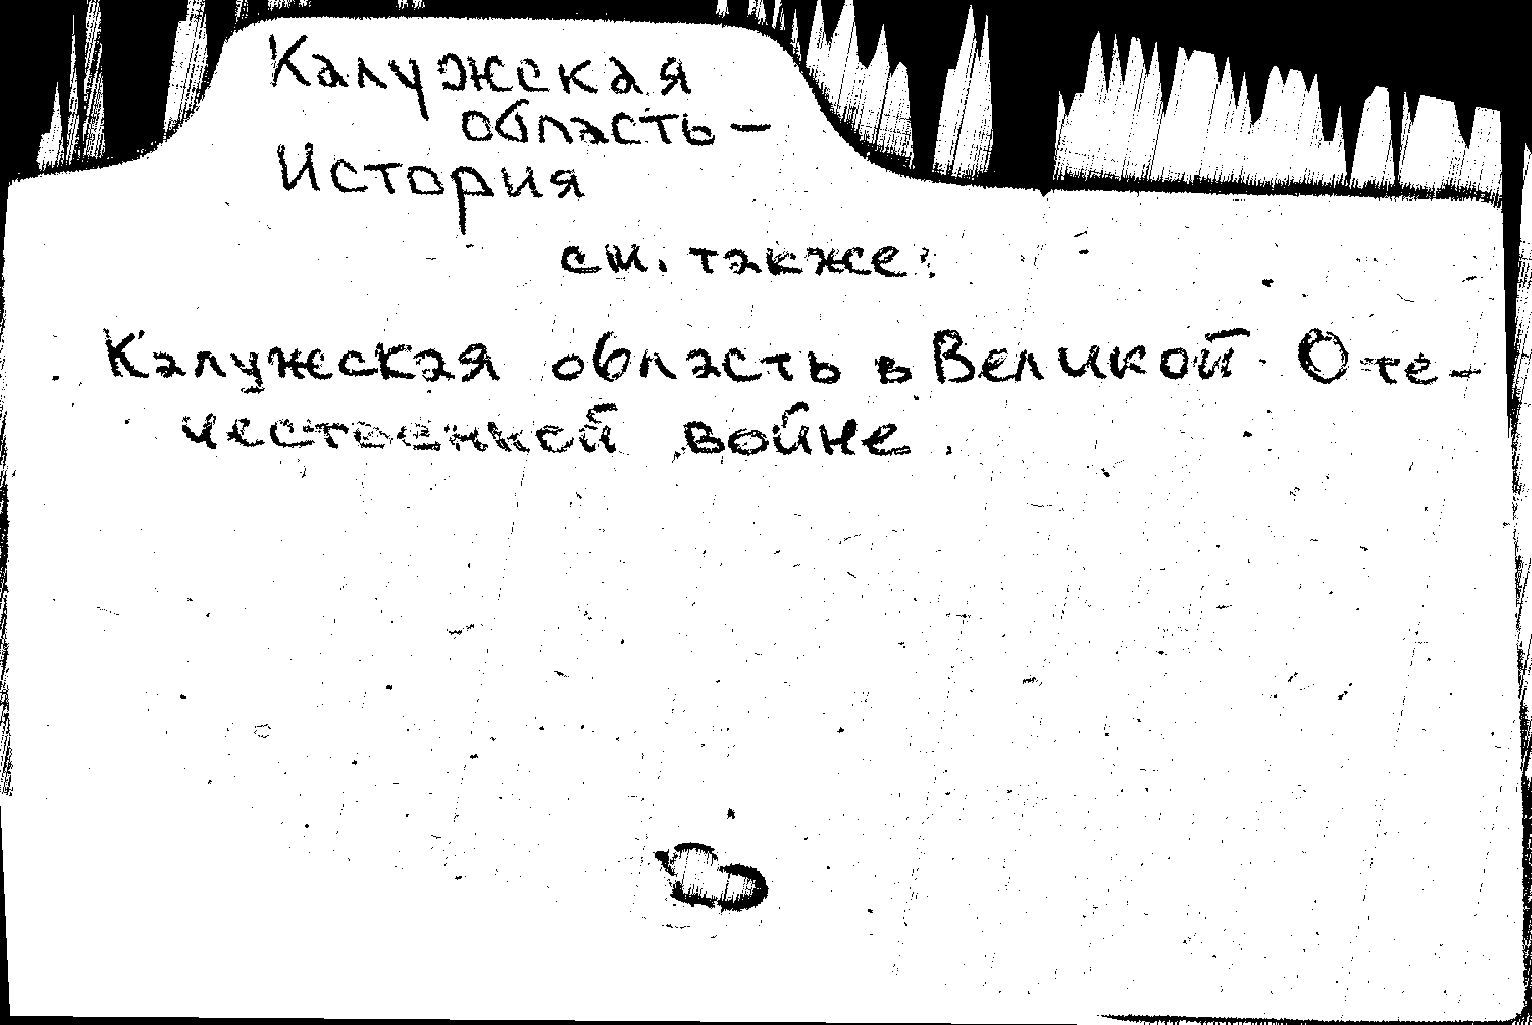 Калужская
область –
История
см. также:
Калужская область в Великой Оте-
чественной войне.